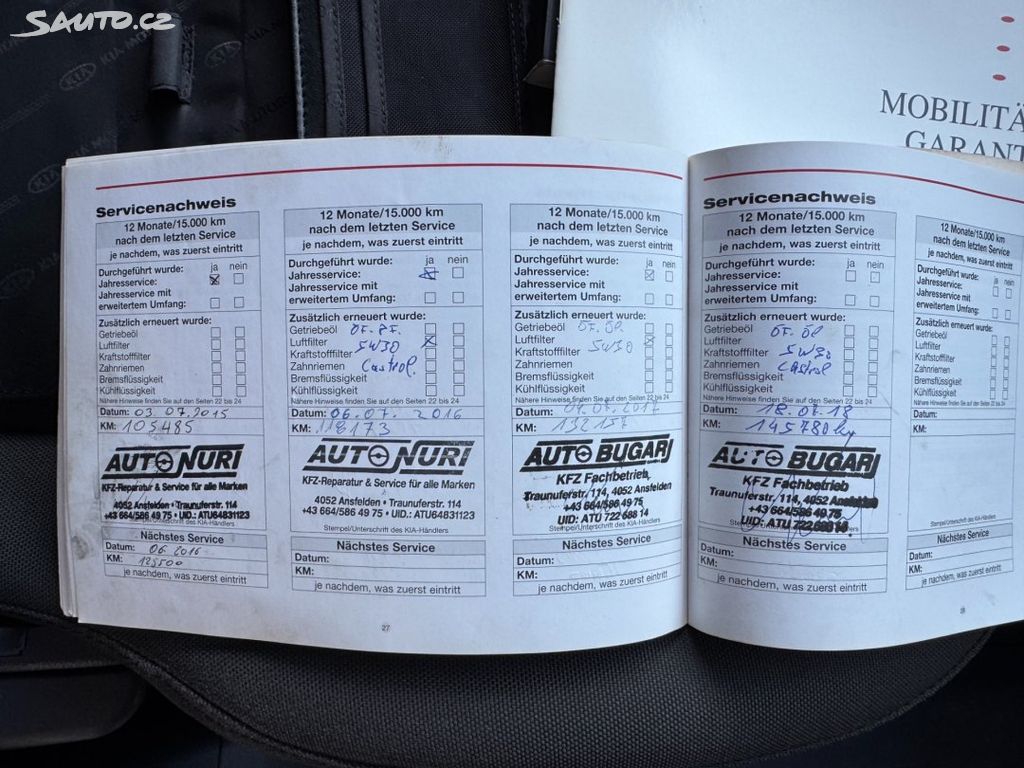 SAUTO.CZ
KIA
MOBILITÄ
GARANT
Servicenachweis
12 Monate/15.000 km
nach dem letzten Service
je nachdem, was zuerst eintritt
Durchgeführt wurde: ja nein
Jahresservice:
Jahresservice mit
erweitertem Umfang:
Zusätzlich erneuert wurde:
Getriebeöl
Luftfilter
Kraftstofffilter
Zahnriemen
Bremsflüssigkeit
Kühlflüssigkeit
Nähere Hinweise finden Sie auf den Seiten 22 bis 24
Datum: 03.07.2015
KM: 105485
AUTO NURI
KFZ-Reparatur & Service für alle Marken
4052 Ansfelden • Traunuferstr. 114
+43 664/586 49 75 • UID.: ATU64831123
Stempel/Unterschrift des KIA-Händlers
Nächstes Service
Datum: 06.2016
KM: 125500
je nachdem, was zuerst eintritt
12 Monate/15.000 km
nach dem letzten Service
je nachdem, was zuerst eintritt
Durchgeführt wurde: ja nein
Jahresservice:
Jahresservice mit
erweitertem Umfang:
Zusätzlich erneuert wurde:
Getriebeöl
Luftfilter 5W30
Kraftstofffilter
Zahnriemen Castrol
Bremsflüssigkeit
Kühlflüssigkeit
Nähere Hinweise finden Sie auf den Seiten 22 bis 24
Datum: 06.07. 2016
KM: 118173
AUTO NURI
KFZ-Reparatur & Service für alle Marken
4052 Ansfelden • Traunuferstr. 114
+43 664/586 49 75 • UID.: ATU64831123
Stempel/Unterschrift des KIA-Händlers
Nächstes Service
Datum:
KM:
je nachdem, was zuerst eintritt
27
12 Monate/15.000 km
nach dem letzten Service
je nachdem, was zuerst eintritt
Durchgeführt wurde: ja nein
Jahresservice:
Jahresservice mit
erweitertem Umfang:
Zusätzlich erneuert wurde:
Getriebeöl ÖF. ÖP.
Luftfilter
Kraftstofffilter 5W30
Zahnriemen
Bremsflüssigkeit
Kühlflüssigkeit
Nähere Hinweise finden Sie auf den Seiten 22 bis 24
Datum: 04.07.2017
KM: 132157
AUTO BUGARI
KFZ Fachbetrieb
Traunuferstr. 114, 4052 Ansfelden
+43 664/586 49 75
UID: ATU 722 688 14
Stempel/Unterschrift des KIA-Händlers
Nächstes Service
Datum:
KM:
je nachdem, was zuerst eintritt
Servicenachweis
12 Monate/15.000 km
nach dem letzten Service
je nachdem, was zuerst eintritt
Durchgeführt wurde: ja nein
Jahresservice:
Jahresservice mit
erweitertem Umfang:
Zusätzlich erneuert wurde:
Getriebeöl ÖF. ÖP
Luftfilter
Kraftstofffilter 5W30
Zahnriemen Castrol
Bremsflüssigkeit
Kühlflüssigkeit
Nähere Hinweise finden Sie auf den Seiten 22 bis 24
Datum: 18.07.18
KM: 145780 km
AUTO BUGARI
KFZ Fachbetrieb
Traunuferstr. 114, 4052 Ansfelden
+43 664/586 49 75
UID: ATU 722 688 14
Nächstes Service
Datum:
KM:
je nachdem, was zuerst eintritt
12 Monate/15.000 km
nach dem letzten Service
je nachdem, was zuerst eintritt
Durchgeführt wurde: ja nein
Jahresservice:
Jahresservice mit
erweitertem Umfang:
Zusätzlich erneuert wurde:
Getriebeöl
Luftfilter
Kraftstofffilter
Zahnriemen
Bremsflüssigkeit
Kühlflüssigkeit
Nähere Hinweise finden Sie auf den Seiten 22 bis 24
Datum:
KM:
Stempel/Unterschrift des KIA-Händlers
Nächstes Service
Datum:
KM:
je nachdem, was zuerst eintritt
28